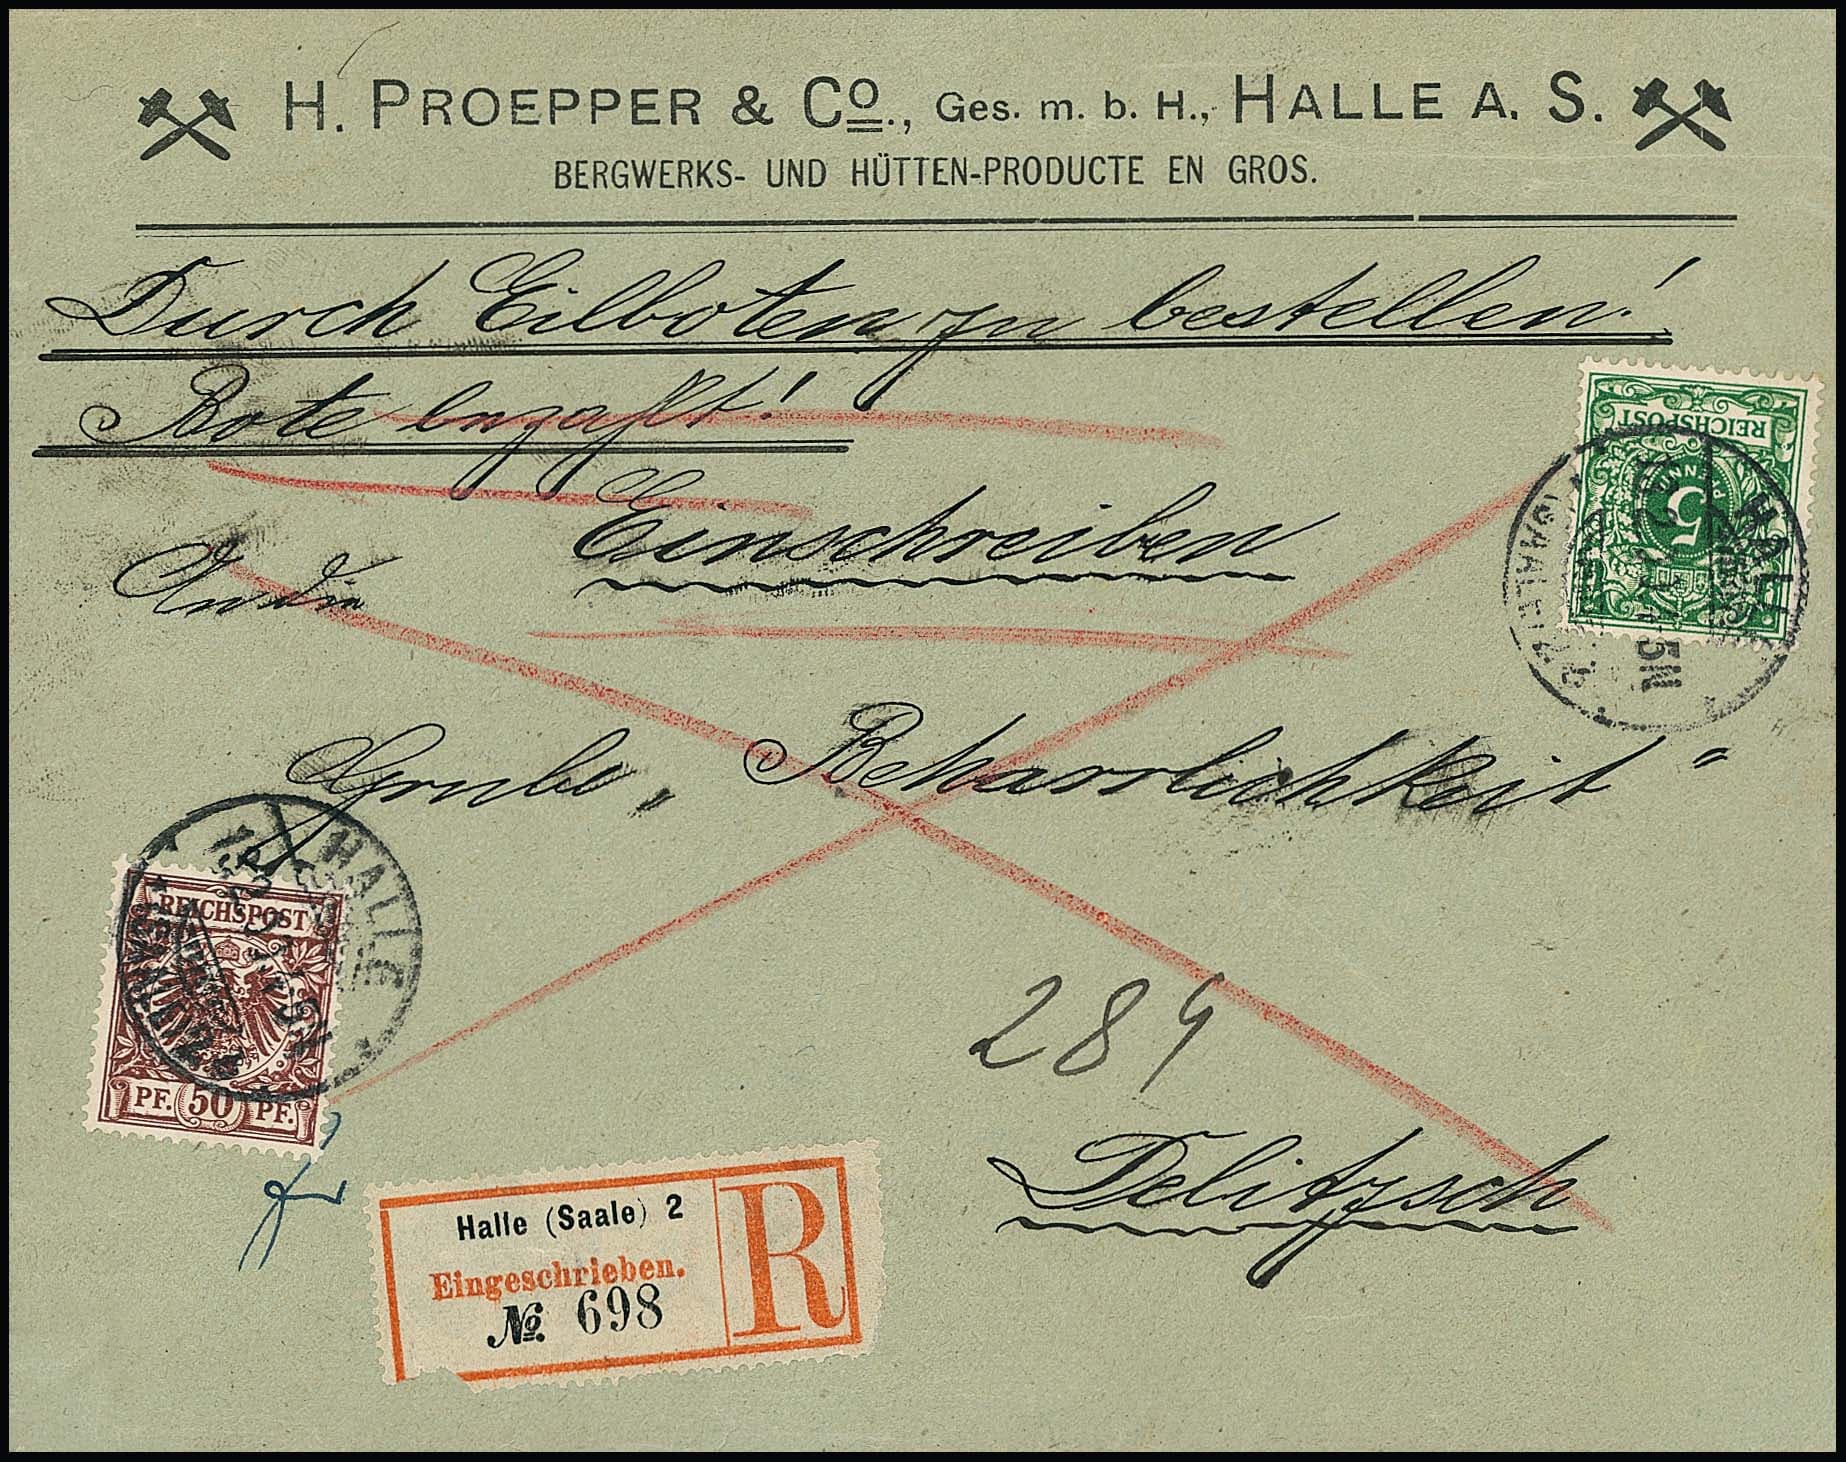 H. PROEPPER & Co., Ges. m. b. H., HALLE A. S.
BERGWERKS- UND HÜTTEN-PRODUCTE EN GROS.
Durch Eilboten zu bestellen!
Bote bezahlt!
Einschreiben
An die
Grube „Beharrlichkeit"
284
Delitzsch
REICHSPOST
5
PFENNIG
HALLE
(SAALE)
5N
HALLE
REICHSPOST
PF. 50 PF.
Halle (Saale) 2
Eingeschrieben.
№. 698
R